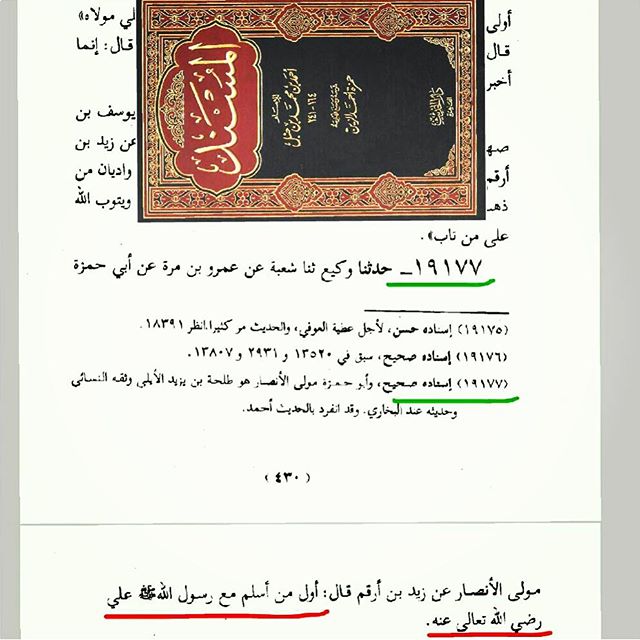 أولى لي مولاه»
قال قال: إنما
أخبر
يوسف بن
صهـ عن زيد بن
أرقم واديان من
ذهـ ويتوب الله
على من تاب».
المسند
للإمام
أحمد بن محمد بن حنبل
١٦٤-٢٤١
حمزة أحمد الزين
دار الحديث
القاهرة
١٩١٧٧ـ حدثنا وكيع ثنا شعبة عن عمرو بن مرة عن أبي حمزة
(١٩١٧٥) إسناده حسن، لأجل عطية العوفي، والحديث مر كثيرا.انظر ١٨٣٩١.
(١٩١٧٦) إسناده صحيح، سبق في ١٣٥٢٠ و ٢٩٣١ و ١٣٨٠٧.
(١٩١٧٧) إسناده صحيح، وأبو حمزة مولى الأنصار هو طلحة بن يزيد الأيلي وثقه النسائي
وحديثه عند البخاري. وقد انفرد بالحديث أحمد.
(٤٣٠)
مولى الأنصار عن زيد بن أرقم قال: أول من أسلم مع رسول الله ﷺ علي
رضي الله تعالى عنه.